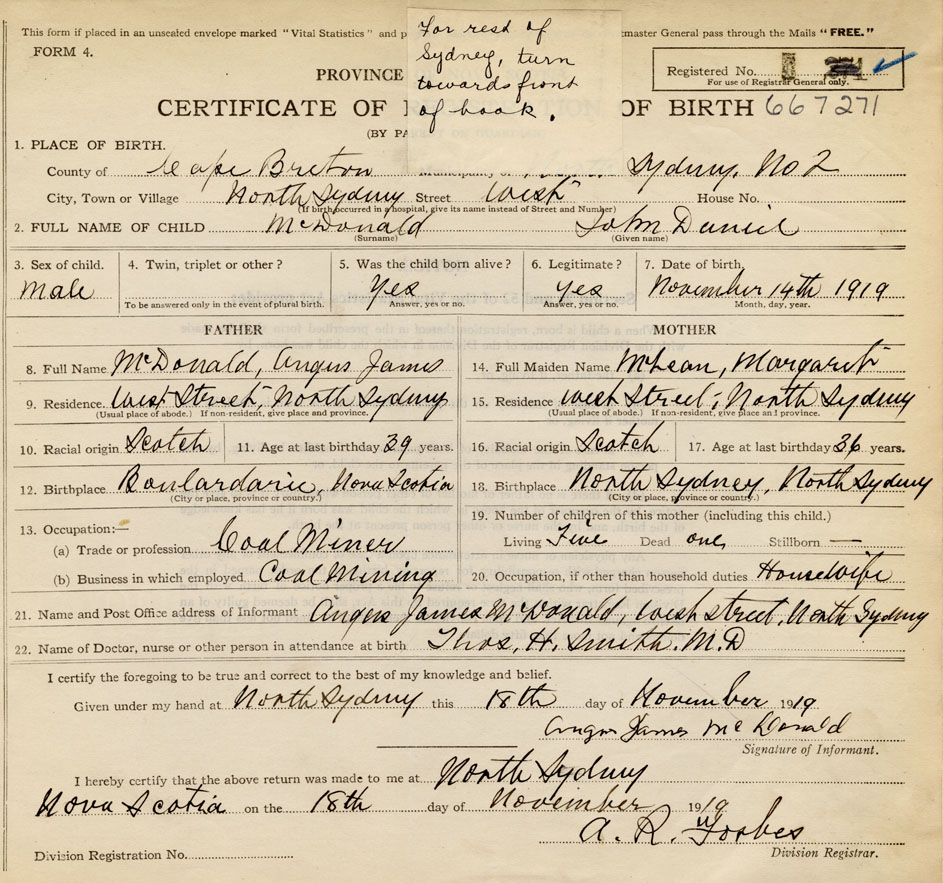 This form if placed in an unsealed envelope marked "Vital Statistics" and p
For rest of
Sydney, turn
towards front
of book.
tmaster General pass through the Mails "FREE."
FORM 4.
Registered No.
For use of Registrar General only.
PROVINCE
CERTIFICATE OF OF BIRTH 667271
(BY PA
1. PLACE OF BIRTH.
County of Cape Breton Municipality of Sydney, No 2
City, Town or Village North Sydney Street West House No.
(If birth occurred in a hospital, give its name instead of Street and Number)
2. FULL NAME OF CHILD McDonald John Daniel
(Surname) (Given name)
3. Sex of child. 4. Twin, triplet or other? 5. Was the child born alive? 6. Legitimate? 7. Date of birth.
Male Yes Yes November 14th 1919
To be answered only in the event of plural birth. Answer, yes or no. Answer, yes or no. Month, day, year.
FATHER
8. Full Name McDonald, Angus James
9. Residence. West Street, North Sydney
(Usual place of abode.) If non-resident, give place and province.
10. Racial origin Scotch 11. Age at last birthday 39 years.
12. Birthplace Boulardarie, Nova Scotia
(City or place, province or country.)
13. Occupation:—
(a) Trade or profession. Coal Miner
(b) Business in which employed Coal Mining
MOTHER
14. Full Maiden Name McLean, Margaret
15. Residence West Street, North Sydney
(Usual place of abode.) If non-resident, give place and province.
16. Racial origin Scotch 17. Age at last birthday 36 years.
18. Birthplace North Sydney, North Sydney
(City or place, province or country.)
19. Number of children of this mother (including this child.)
Living Five Dead one Stillborn —
20. Occupation, if other than household duties Housewife
21. Name and Post Office address of Informant Angus James McDonald, West Street, North Sydney
22. Name of Doctor, nurse or other person in attendance at birth Thos. H. Smith. M.D
I certify the foregoing to be true and correct to the best of my knowledge and belief.
Given under my hand at North Sydney this 18th day of November 1919
Angus James McDonald
Signature of Informant.
I hereby certify that the above return was made to me at North Sydney
Nova Scotia on the 18th day of November 1919
A. R. Forbes
Division Registration No. Division Registrar.